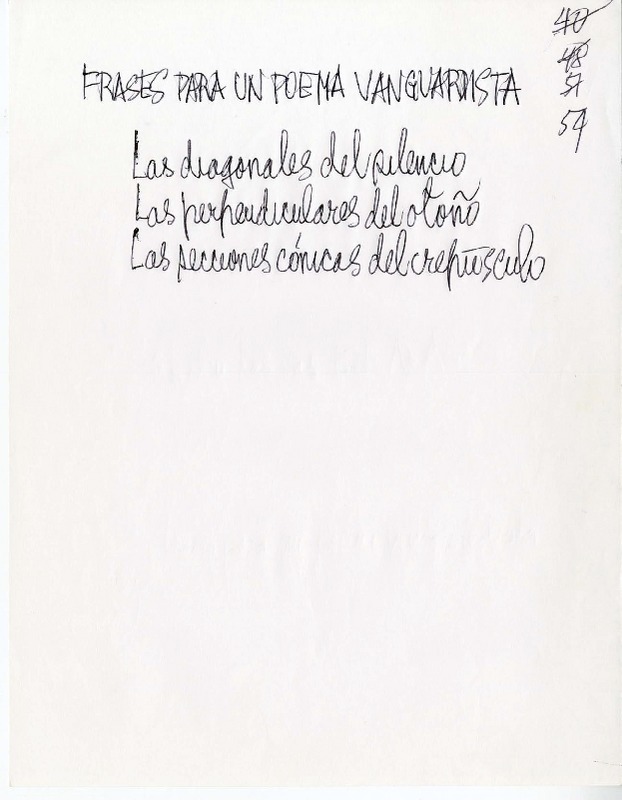 40
48
51
54
FRASES PARA UN POEMA VANGUARDISTA
Las diagonales del silencio
Las perpendiculares del otoño
Las secciones cónicas del crepúsculo